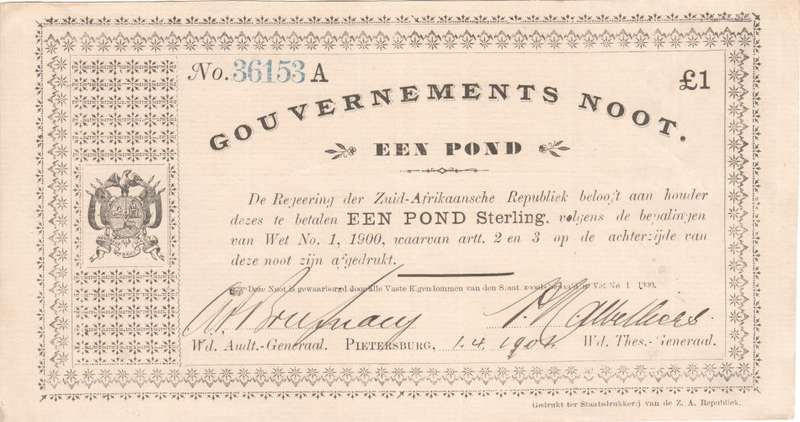 No. 36153 A
£1
GOUVERNEMENTS NOOT.
EEN POND
De Regeering der Zuid-Afrikaansche Republiek belooft aan houder
dezes te betalen EEN POND Sterling, volgens de bepalingen
van Wet No. 1, 1900, waarvan artt. 2 en 3 op de achterzijde van
deze noot zijn afgedrukt.
Deze Noot is gewaarborgd door alle Vaste Eigendommen van den Staat, Wet No 1 1900.
Wd. Audt.-Generaal. PIETERSBURG, 1.4.1901. Wd. Thes.-Generaal.
Gedrukt ter Staatsdrukkerij van de Z. A. Republiek.